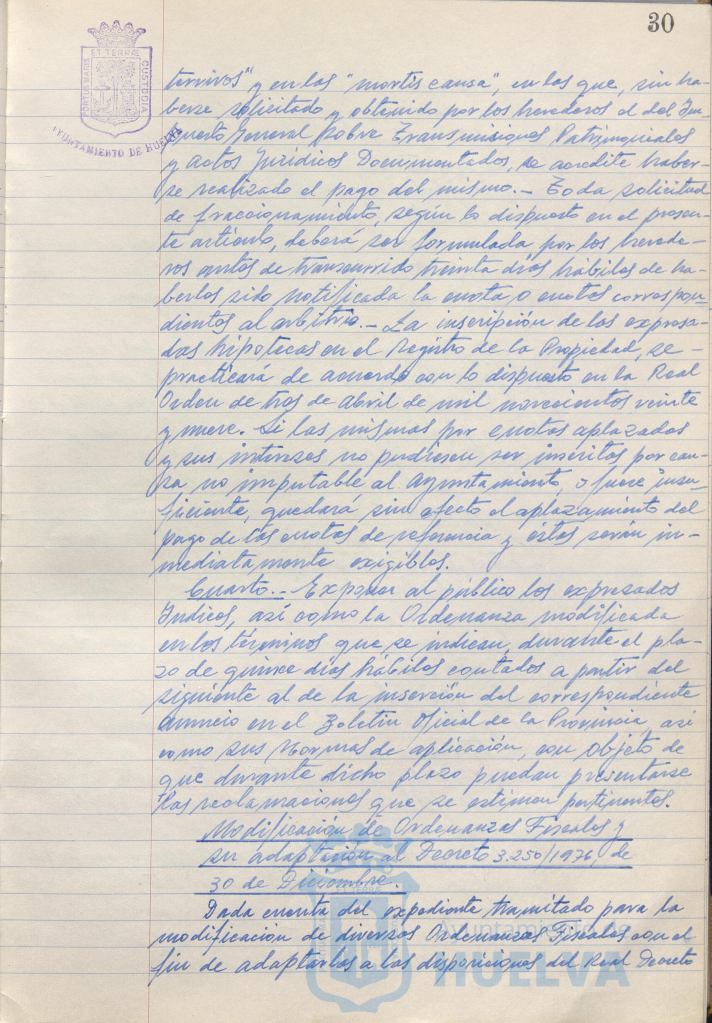 30
PORTUS MARIS ET TERRAE CUSTODIA
AYUNTAMIENTO DE HUELVA
tervivos" y en las "mortis causa", en las que, sin ha-
berse solicitado y obtenido por los herederos el del Im-
puesto General sobre Transmisiones Patrimoniales
y Actos Jurídicos Documentados, se acredite haber-
se realizado el pago del mismo.- Toda solicitud
de fraccionamiento, según lo dispuesto en el presen-
te artículo, deberá ser formulada por los herede-
ros antes de transcurrido treinta días hábiles de ha-
berles sido notificada la cuota o cuotas correspon-
dientes al arbitrio.- La inscripción de las expresa-
das hipotecas en el Registro de la Propiedad, se-
practicará de acuerdo con lo dispuesto en la Real
Orden de tres de Abril de mil novecientos veinte
y nueve. Si las mismas por cuotas aplazadas
y sus intereses no pudiesen ser inscritas por cau-
sa no imputable al Ayuntamiento, o fuere insu-
ficiente, quedará sin efecto el aplazamiento del
pago de las cuotas de referencia y éstas serán in-
mediatamente exigibles.
Cuarto.- Exponer al público los expresados
Indices, así como la Ordenanza modificada
en los términos que se indican, durante el pla-
zo de quince días hábiles contados a partir del
siguiente al de la inserción del correspondiente
anuncio en el Boletín Oficial de la Provincia, así
como sus Normas de aplicación, con objeto de
que durante dicho plazo puedan presentarse
las reclamaciones que se estimen pertinentes.
Modificación de Ordenanzas Fiscales y
su adaptación al Decreto 3.250/1976, de
30 de Diciembre.
Dada cuenta del expediente tramitado para la
modificación de diversas Ordenanzas Fiscales con el
fin de adaptarlas a las disposiciones del Real Decreto
Ayuntamiento de
HUELVA